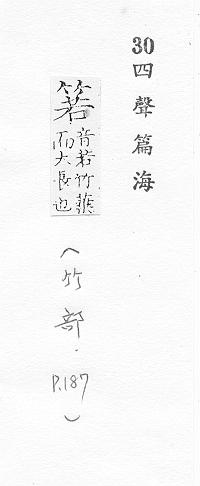 30四聲篇海
箬
音若竹𥴊
而大長也
(竹部.
P.187)